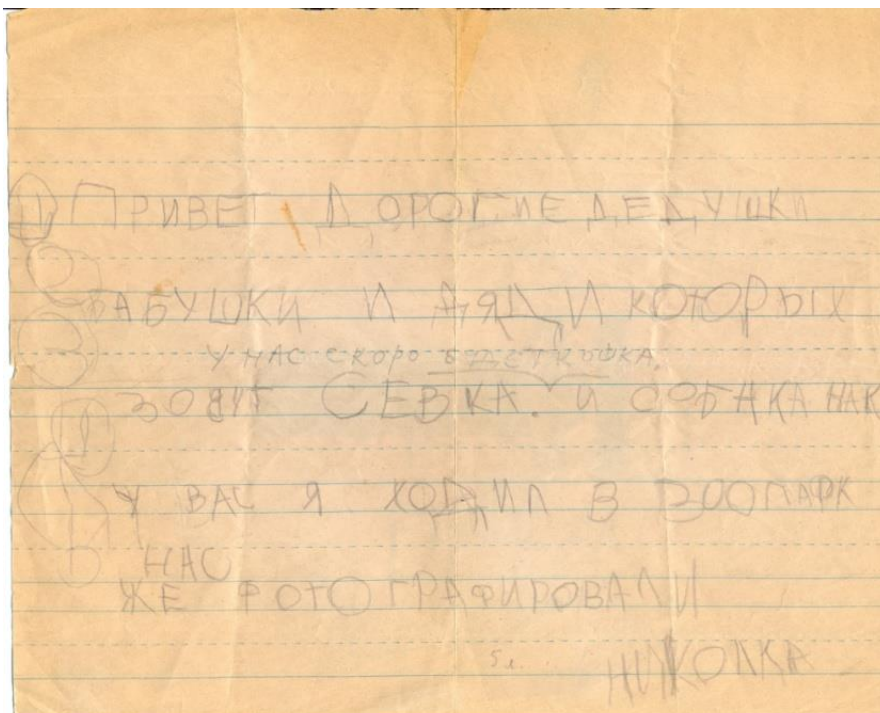 ПРИВЕТ ДОРОГИЕ ДЕДУШКИ
БАБУШКИ И ДЯДИ КОТОРЫХ
У НАС СКОРО
ЗОВУТ СЕВКА. И СОБАКА НАК
У ВАС Я ХОДИЛ В ЗООПАРК
НАС
ЖЕ ФОТОГРАФИРОВАЛИ
5 л. НИКОЛКА